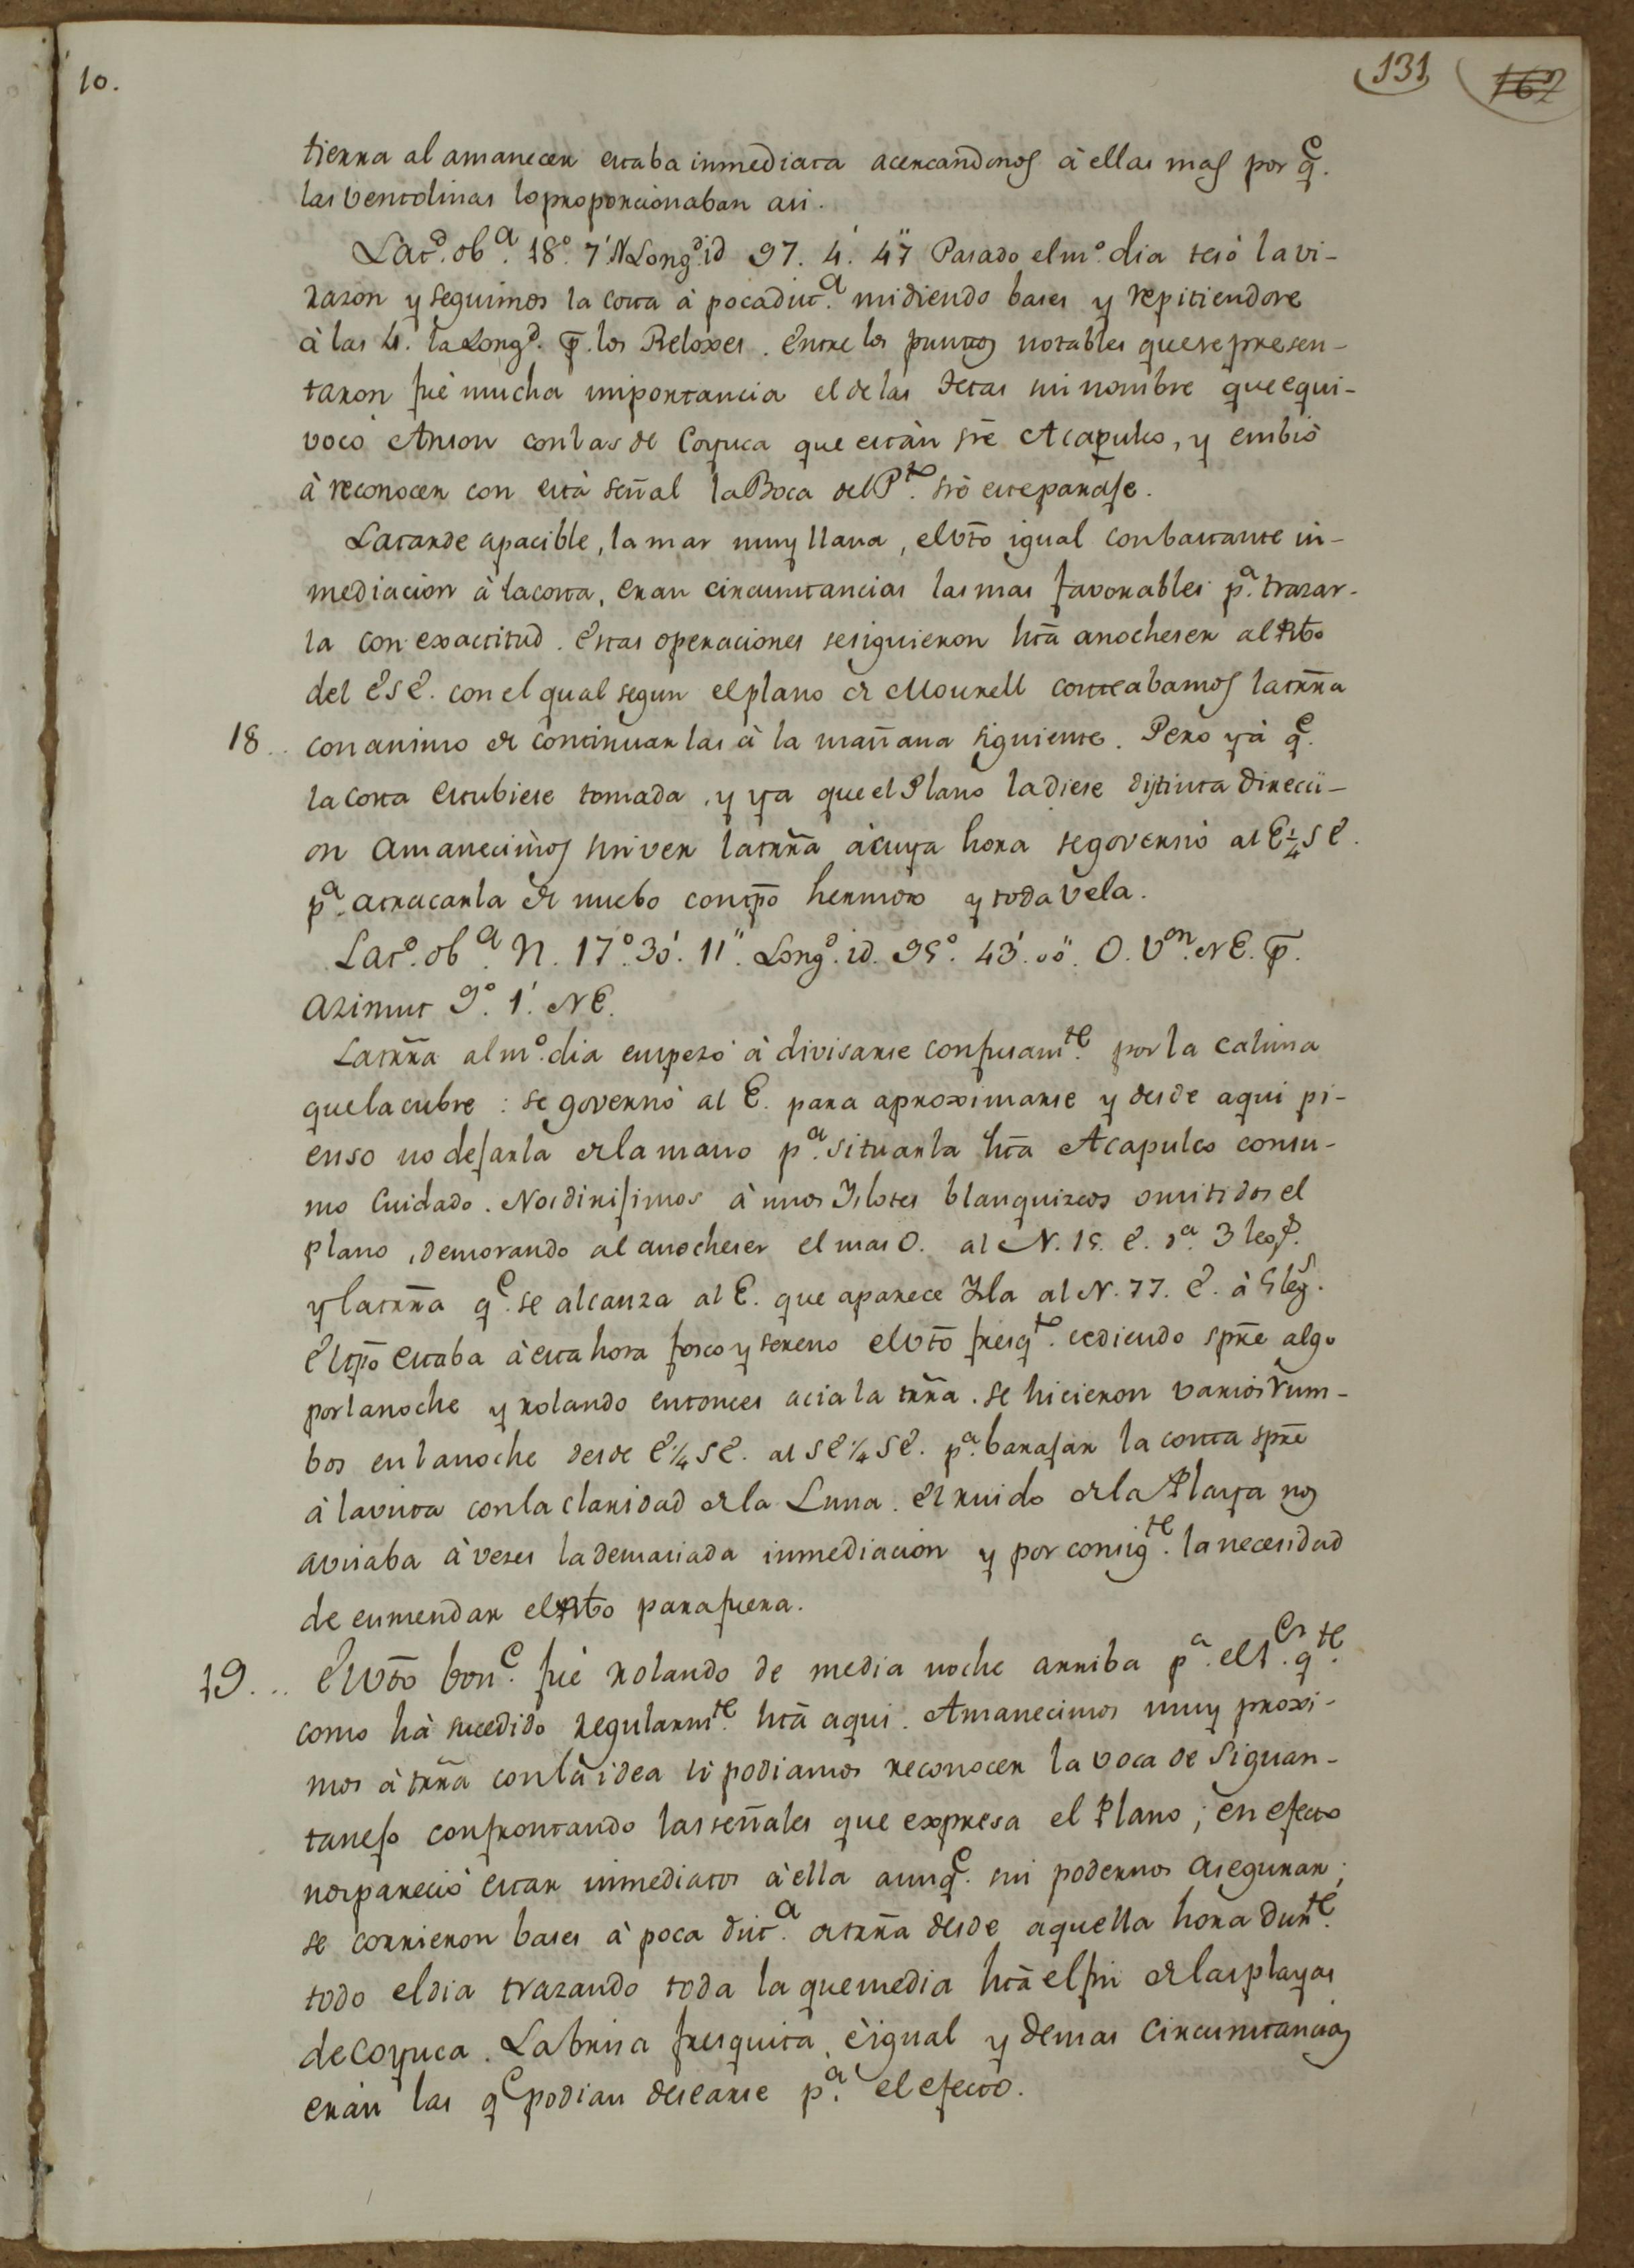 10.
131 162
tierra al amanecer estaba inmediata acercandonos à ellas mas por q.e
las ventolinas lo proporcionaban asi.
Lat.d ob.a 18.° 7.' N Long.d id 97. 4.' 47'' Pasado el m.° dia sesò la vi-
razon y seguimos la costa à poca dist.a midiendo bases y repitiendose
à las 4. la Long.d p. los Reloxes. Entre los puntos notables que se presen-
taron fuè mucha importancia el de las Tetas sin nombre que equi-
vocò Anson con las de Coyuca que estàn sre Acapulco, y embiò
à reconocer con està señal la Boca del P.to srè este parage.
La tarde apacible, la mar muy llana, el vto igual con bastante in-
mediacion à la costa, eran circunstancias las mas favorables p.a trazar-
la con exactitud. Estas operaciones se siguieron hta anocheser al Rbo
del ESE. con el qual segun el plano de Mourell costeabamos la trra
18.. con animo de continuarlas à la mañana siguiente. Pero yà q.e
la costa estubiese tomada, y ya que el Plano la diese distinta direcci-
on amanecimos sin ver la trra à cuya hora se governò al E 1/4 SE.
p.a atracarla de nuebo con tpo hermoso y toda vela.
Lat.d ob.a N. 17.° 30.' 11.'' Long.d id. 95.° 43.' 00.'' O. V.on NE. p.
Azimut 9.° 1.' NE.
La trra al m.° dia empezò à divisarse confusam.te por la calima
que la cubre: se governò al E. para aproximarse y desde aqui pi-
enso no dejarla de la mano p.a situarla hta Acapulco con su-
mo Cuidado. Nos dirijimos à unos Yslotes blanquizcos omitidos el
plano, demorando al anocheser el mas O. al N. 15. E. d.a 3 leg.s
y la trra q.e se alcanza al E. que aparece Ysla al N. 77. E. à 5 leg.s
El tpo estaba à esta hora fosco y sereno el vto fresq.to cediendo spre algo
por la noche y rolando entonces acia la trra. se hicieron varios rum-
bos en la noche desde E 1/4 SE. al SE 1/4 SE. p.a barajar la costa spre
à la vista con la claridad de la Luna. El ruido de la Playa nos
avisaba à veses la demasiada inmediacion y por consig.te la necesidad
de enmendar el Rbo para fuera.
19... El vto bon.e fuè rolando de media noche arriba p.a el 1.er q.te
como hà sucedido regularm.te hta aqui. Amanecimos muy proxi-
mos à trra con là idea si podiamos reconocer la voca de Siguan-
tanejo confrontando las señales que expresa el Plano; en efecto
nos pareciò estar inmediatos à ella aunq.e sin podernos asegurar;
se corrieron bases à poca dist.a de trra desde aquella hora dur.te
todo el dia trazando toda la que media hta el fin de las playas
de Coyuca. La brisa fresquita, è igual y demas Circunstancias
eràn las q.e podian desearse p.a el efecto.